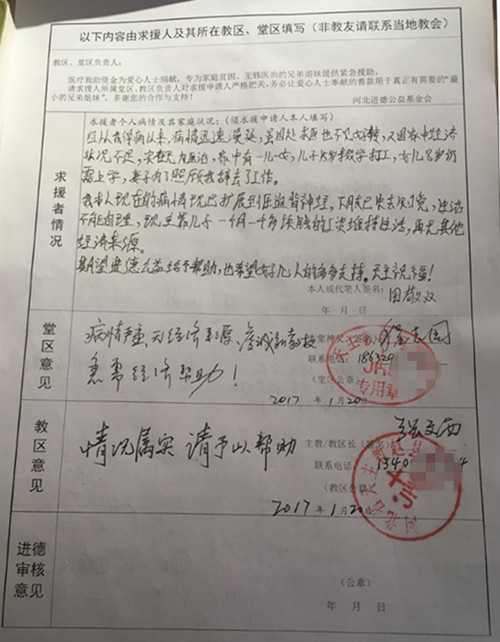 以下内容由求援人及其所在教区、堂区填写（非教友请联系当地教会）
教区、堂区负责人：
医疗救助资金为爱心人士捐献，专为家庭贫困、无钱医治的兄弟姐妹提供紧急援助。
请求援人所属堂区、教区负责人对求援申请人严格把关，务必让爱心人士奉献的善款用于真正有需要的“最
小的兄弟姐妹”，多谢您的合作与支持！
河北进德公益基金会
求援者情况
本援者个人病情及其家庭状况：（须求援申请人本人填写）
自从我得病以来，病情迅速漫延，虽四处求医也不见好转，又因家中经济
状况不足，实在无力医治，家中有一儿一女，儿子
打工，女儿8岁仍
需上学，妻子为了照顾我辞去了工作。
我本人现在的病情现已扩展到压迫神经，下肢已失去知觉，生活
不能自理，现主靠儿子一个月一千多块钱的工资维持生活，再无其他
经济来源。
期望进德公益给予帮助，也希望好心人的多多支持。天主宠福！
本人或代笔人签名：
年 月 日
堂区意见
病情严重，无经济来源，虔诚的教友
急需经济帮助！
联系电话：186320
（堂区公章）
专用章
2017 年 1 月 20 日
教区意见
情况属实 请予以帮助
主教/教区长（签名）：
联系电话：
（教区公章）
2017 年 1 月 20 日
进德审核意见
（公章）
年 月 日